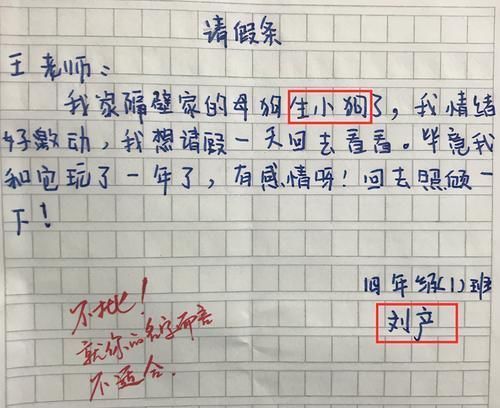 请假条
王老师：
我家隔壁家的母狗生小狗了，我情绪
好激动，我想请假一天回去看看。毕竟我
和它玩了一年了，有感情吗！回去照倾一
下！
四年级(1)班
刘产
不批！
就你的名字而言
不适合.